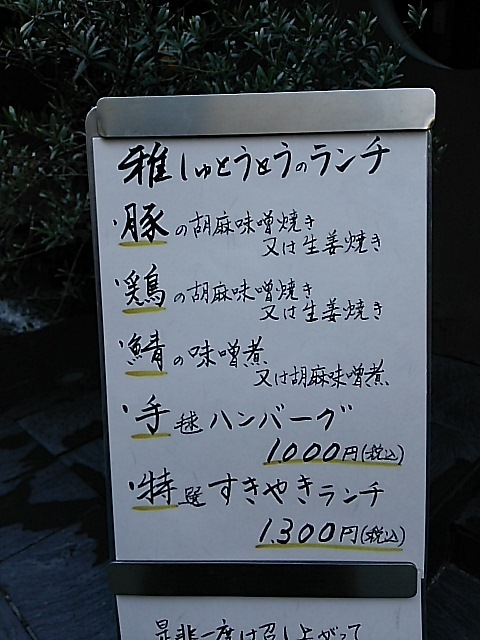 雅しゅとうとうのランチ
・豚の胡麻味噌焼き
又は生姜焼き
・鶏の胡麻味噌焼き
又は生姜焼き
・鯖の味噌煮
又は胡麻味噌煮
・手毬ハンバーグ
1.000円(税込)
・特選すきやきランチ
1.300円(税込)
是非一度は召し上がって